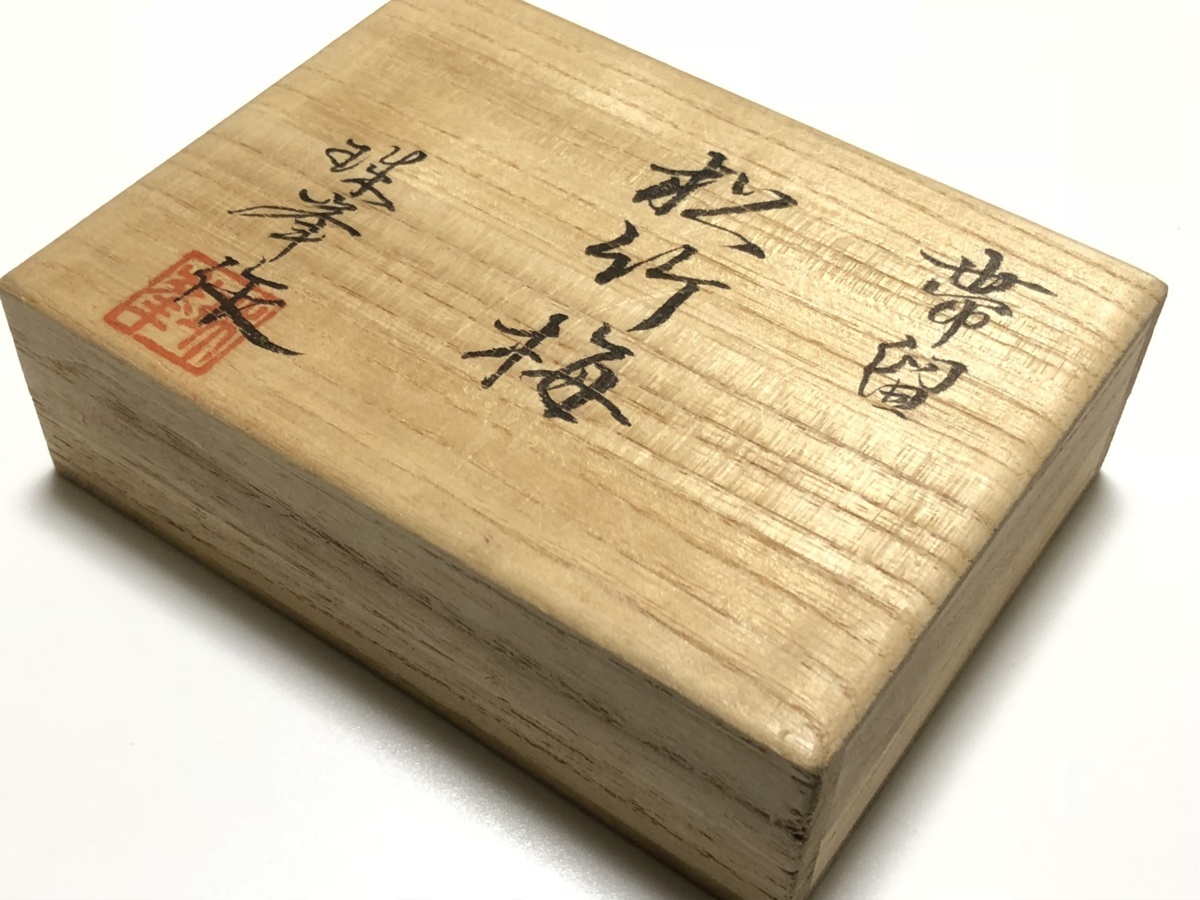 帯留
松竹梅
珠峯 作